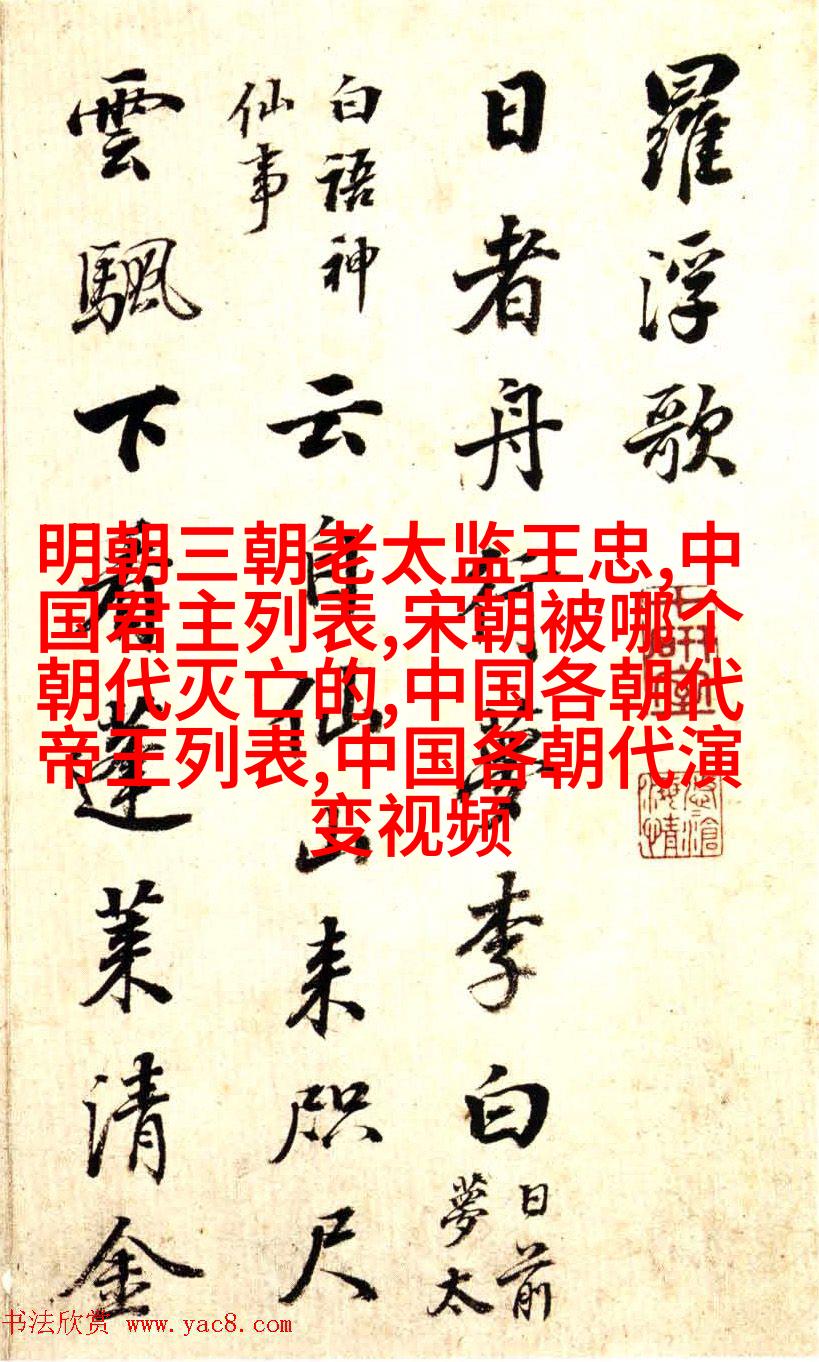 羅浮歌
日者舟行夢李白
日前
夢太
白語神
仙事
云自仙山来咫尺
雲颿下蓬莱清金
明朝三朝老太监王忠,中
国君主列表,宋朝被哪个
朝代灭亡的,中国各朝代
帝王列表,中国各朝代演
变视频
书法欣赏 www.yac8.com